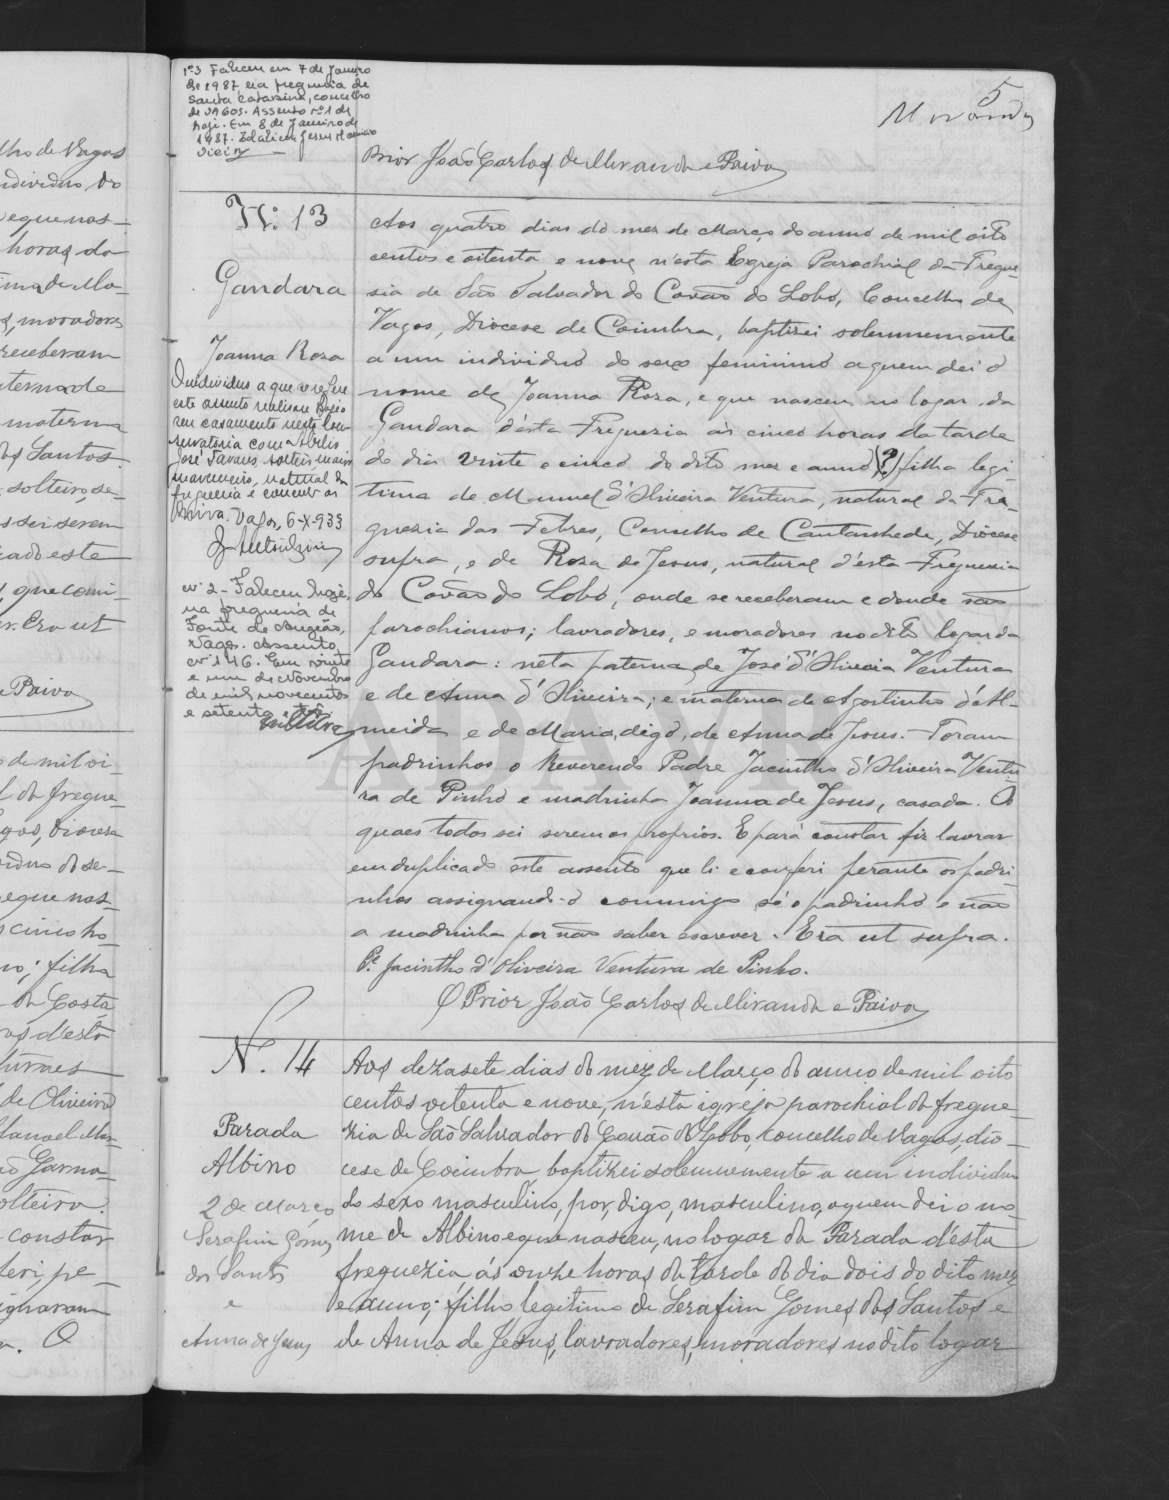 lho de Vagos
individuo do
e que nas-
horas da
moradores
receberam
paterna de
materna
dos Santos
solteiro se-
sei serem
cado este
que comi-
Era ut
e Paiva
de mil oi-
da fregue-
Diocese
do se-
e que nas-
cinco ho-
filha
da Costa
d'esta
de Oliveira
Manoel
solteira.
constar
pe-
signaram
O
nº 3 Faleceu em 7 de Janeiro
de 1987 na freguesia de
Santa Catarina, concelho
de Vagos. Assento nº 1 de
hoje. Em 8 de Janeiro de
1987.
5
Miranda
Prior João Carlos de Miranda e Paiva
N.º 13
Gandara
Joanna Roza
Individuo a que se refere
este assento realisou hoje
seu casamento nesta Con-
servatoria com Abilio
José Tavares, solteiro, maior
marceneiro, natural da
freguesia e concelho
Vagos, 6-X-933
nº 2 - Faleceu hoje,
na freguesia de
Fonte de Angeão,
Vagos. Assento
nº 146. Em vinte
e um de Novembro
de mil novecentos
e setenta e três.
Aos quatro dias do mez de Março do anno de mil oito
centos e oitenta e nove n'esta Egreja Parochial da Fregue-
sia de São Salvador do Covão do Lobo, Concelho de
Vagos, Diocese de Coimbra, baptizei solemnemente
a um individuo do sexo feminino a quem dei o
nome de Joanna Roza, e que nasceu no logar da
Gandara d'esta Freguezia ás cinco horas da tarde
do dia vinte e cinco do dito mez e anno (?) filha legi-
tima de Manuel d'Oliveira Ventura, natural da Fre-
guezia das Febres, Concelho de Cantanhede, Diocese
supra, e de Roza de Jesus, natural d'esta Freguezia
do Covão do Lobo, onde se receberam e donde são
parochianos; lavradores, e moradores no dito logar da
Gandara: neta paterna de José d'Oliveira Ventura
e de Anna d'Oliveira; e materna de Agostinho d'Al-
meida e de Maria, digo, de Anna de Jesus. Foram
padrinhos o Reverendo Padre Jacintho d'Oliveira Ventu-
ra de Pinho e madrinha Joanna de Jesus, casada. Os
quaes todos sei serem os proprios. E para constar fiz lavrar
em duplicado este assento que li e conferi perante os padri-
nhos assignando-o commigo só o padrinho e não
a madrinha por não saber escrever. Era ut supra.
Pe. Jacintho d'Oliveira Ventura de Pinho.
O Prior João Carlos de Miranda e Paiva
N.º 14
Parada
Albino
2 de Março
Serafim Gomes
dos Santos
e
Anna de Jesus
Aos dezasete dias do mez de Março do anno de mil oito
centos oitenta e nove, n'esta igreja parochial da fregue-
zia de São Salvador do Covão do Lobo, concelho de Vagos, dio-
cese de Coimbra baptizei solemnemente a um individuo
do sexo masculino, por, digo, masculino, a quem dei o no-
me de Albino e que nasceu, no logar da Parada d'esta
freguezia, ás onze horas da tarde do dia dois do dito mez
e anno; filho legitimo de Serafim Gomes dos Santos e
de Anna de Jesus, lavradores, moradores no dito logar
ADAVR